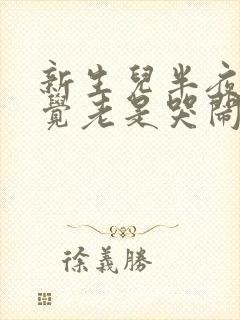 新生兒半夜
覺老是哭鬧
徐義勝